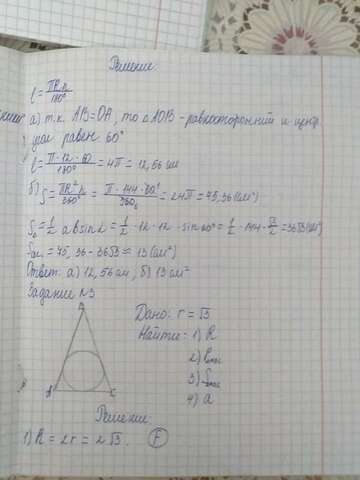 Решение
l = πR·n / 180°
а) т.к. AB=OA, то △AOB - равносторонний и центр.
угол равен 60°
l = π·12·60 / 180° = 4π = 12,56 см
б) S = πR²n / 360° = π·144·60° / 360° = 24π = 75,36 (см²)
S△ = 1/2 a b sin α = 1/2 · 12 · 12 · sin 60° = 1/2 · 144 · √3/2 = 36√3 (см²)
= 75,36 - 36√3 ≈ 13 (см²)
Ответ: а) 12,56 см, б) 13 см²
Задание №3
A
B
C
Дано: r = √3
Найти: 1) R
2)
3)
4) a
Решение:
1) R = 2r = 2√3.